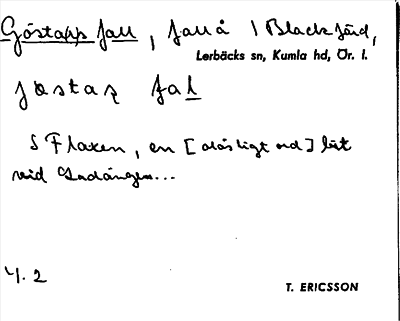 Göstapp fall, fall å i Blackfjärd,
Lerbäcks sn, Kumla hd, Ör. l.
fal
S Flaxen, en [oläsligt ord] lät
vid Indängen...
4. 2
T. ERICSSON